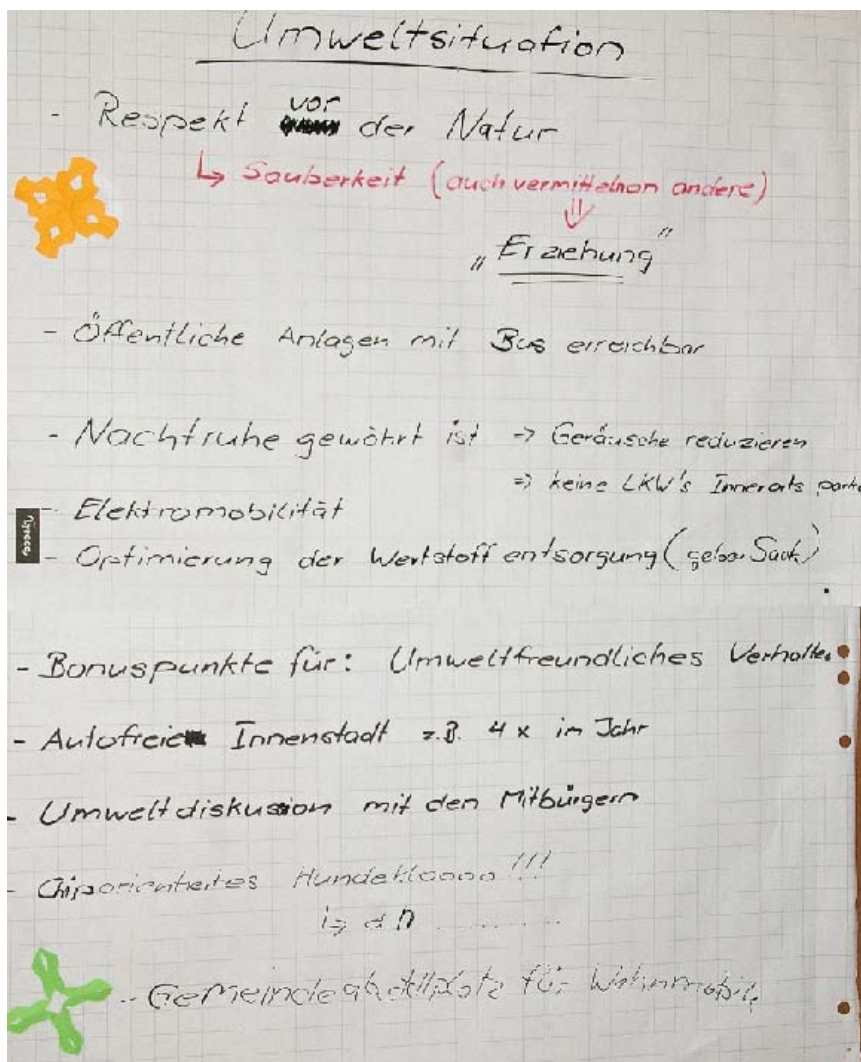 Umweltsituation
- Respekt vor der Natur
↳ Sauberkeit (auch vermitteln an andere)
⇓
„Erziehung"
- Öffentliche Anlagen mit Bus erreichbar
- Nachtruhe gewährt ist → Geräusche reduzieren
⇒ keine LKW's Innerorts
- Elektromobilität
- Optimierung der Wertstoffentsorgung (gelber Sack)
- Bonuspunkte für: Umweltfreundliches Verhalten
- Autofreie Innenstadt z.B. 4 x im Jahr
- Umweltdiskussion mit den Mitbürgern
- Chiporientiertes Hundekloooo!!!
- Gemeindeabstellplatz für Wohnmobile